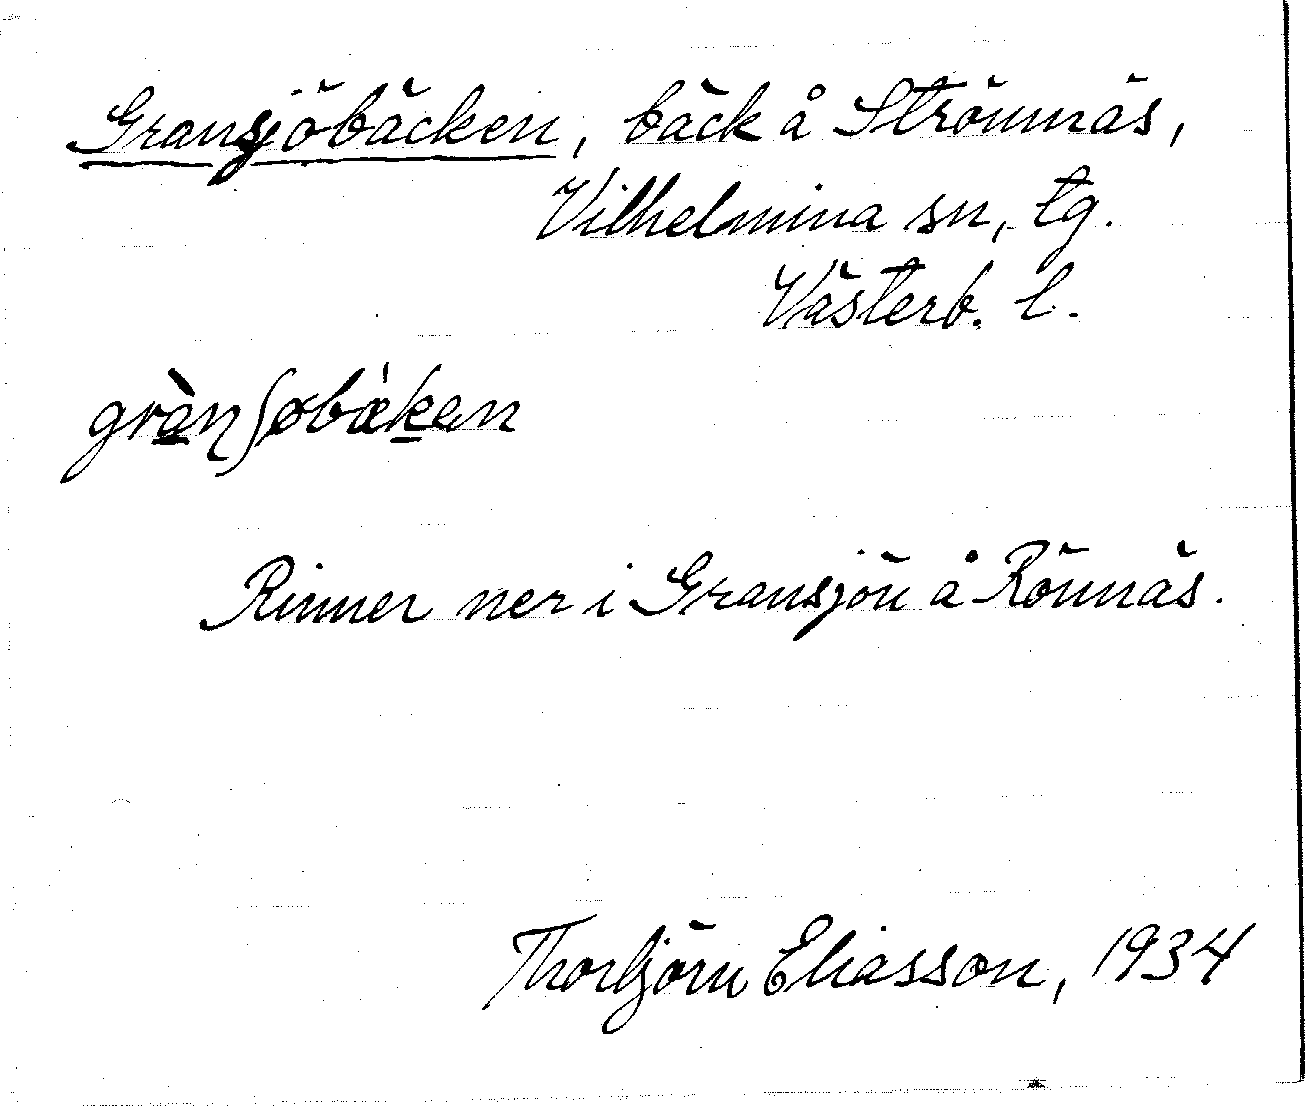 Gransjöbäcken, bäck å Strömnäs,
Vilhelmina sn, tg.
Västerb. l.
grànʃøbæken
Rinner ner i Gransjön å Rönnäs.
Thorbjörn Eliasson, 1934